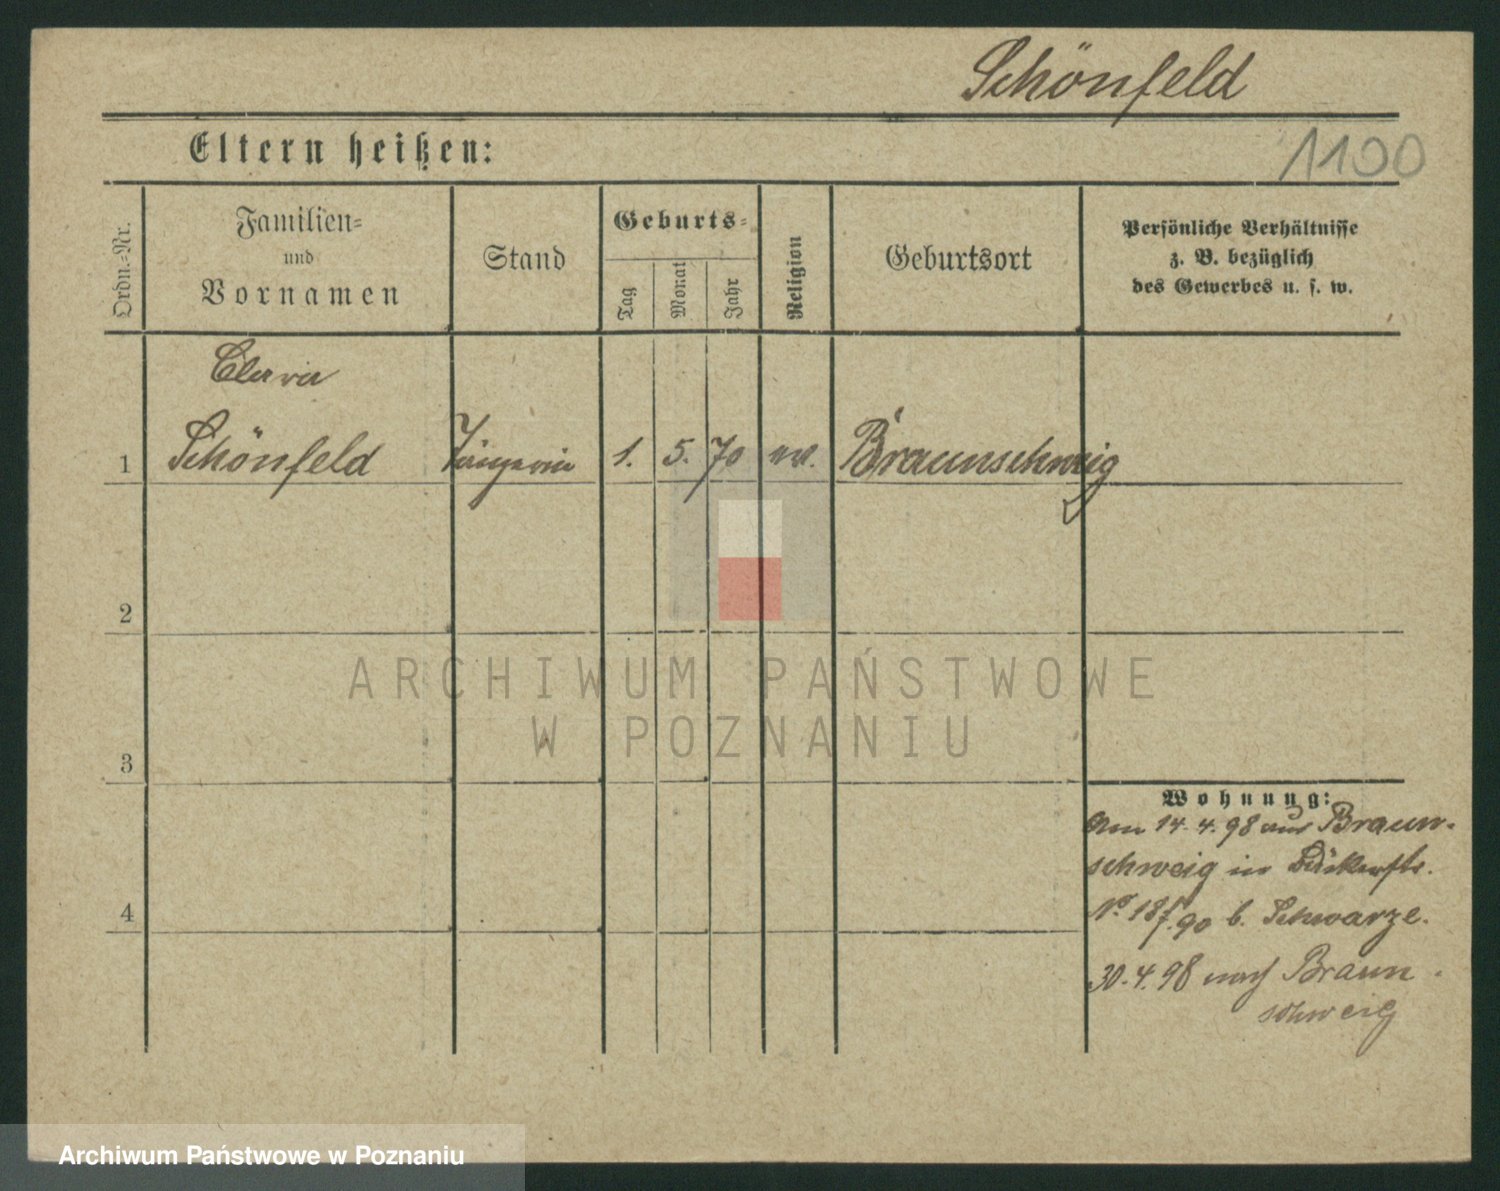 Schönfeld
1100
Eltern heißen:
Ordn.-Nr.
Familien-
und
Vornamen
Stand
Geburts-
Tag
Monat
Jahr
Religion
Geburtsort
Persönliche Verhältnisse
z. B. bezüglich
des Gewerbes u. s. w.
1
Schönfeld
Sängerin 1. 5. 70 ev. Braunschweig
2
3
4
Wohnung:
Am 14. 4. 98 aus Braun-
schweig in Bäckerstr.
No 18 b. Schwarze.
30. 4. 98 nach Braun
schweig
ARCHIWUM PAŃSTWOWE
W POZNANIU
Archiwum Państwowe w Poznaniu